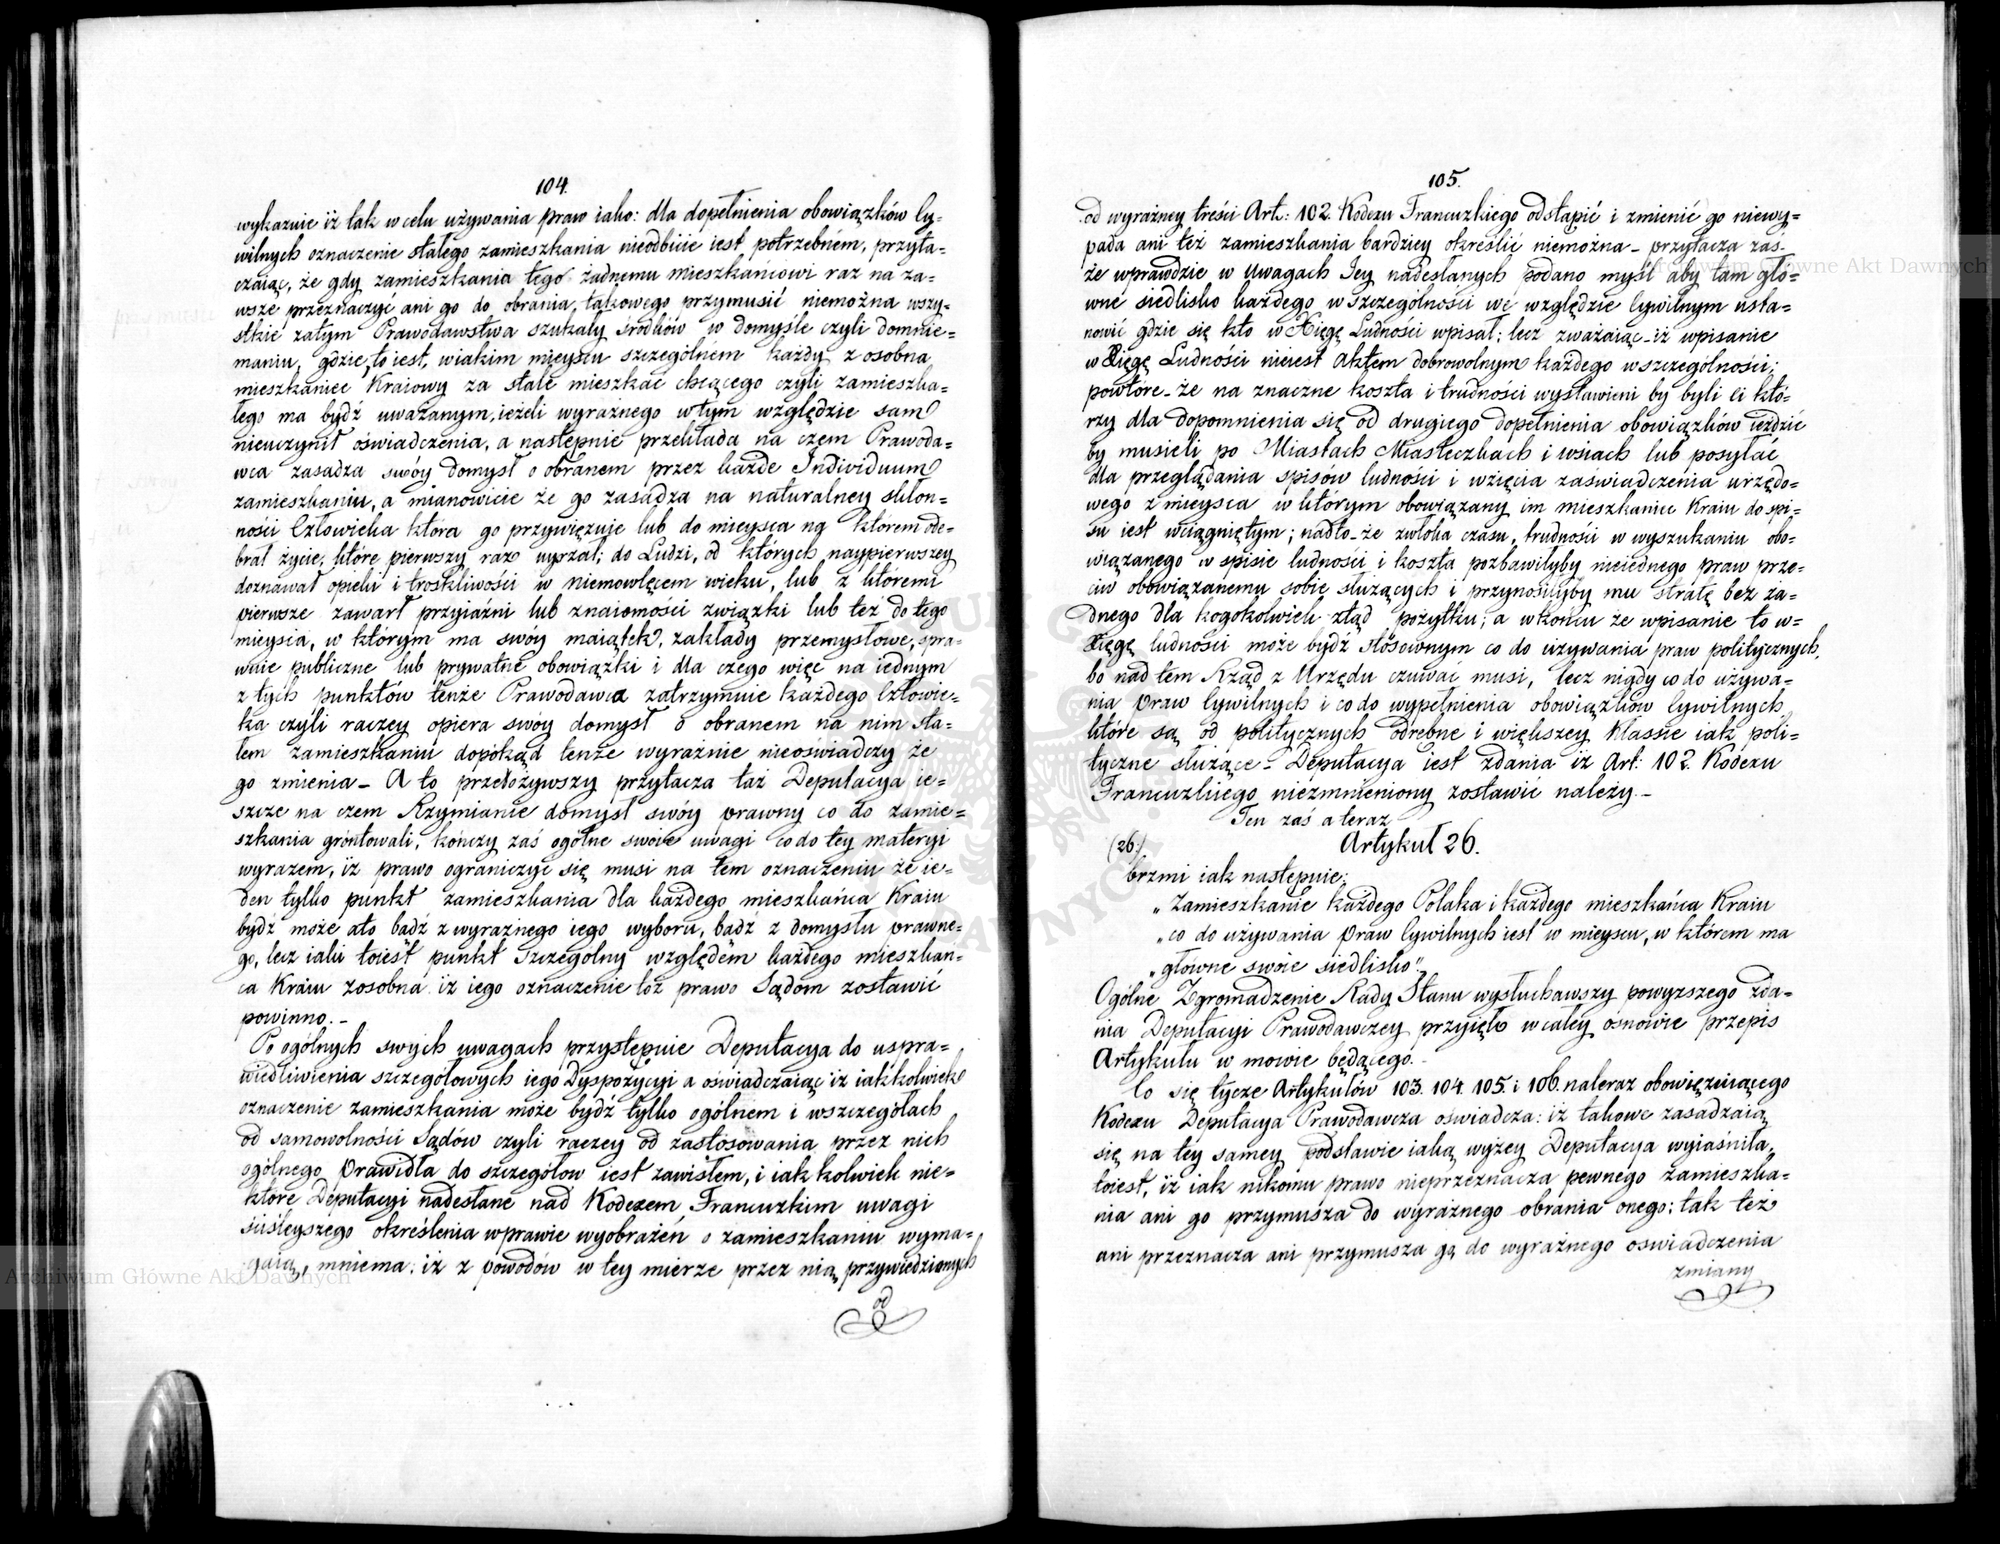 104.
wykazuie iż tak w celu używania praw iako: dla dopełnienia obowiązków Cy-
wilnych oznaczenie stałego zamieszkania nieodbicie iest potrzebném, przyta-
czaiąc, że gdy zamieszkania tego żadnemu mieszkańcowi raz na za-
wsze przeznaczyć ani go do obrania takowego przymusić niemożna wszy-
stkie zatym Prawodawstwa szukały śródków w domyśle czyli domnie-
maniu, gdzie, to iest, w iakim mieyscu szczególném każdy z osobna
mieszkaniec Kraiowy za stale mieszkać chcącego czyli zamieszka-
łego ma bydź uważanym, ieżeli wyraźnego w tym względzie sam
nieuczynił oświadczenia, a następnie przekłada na czem Prawoda-
wca zasadza swóy domysł o obranem przez każde Individuum
zamieszkaniu, a mianowicie że go zasadza na naturalney skłon-
ności Człowieka która go przywięzuie lub do mieysca na którem ode-
brał życie, które pierwszy raz uyrzał; do Ludzi, od których naypierwszey
doznawał opieki i troskliwości w niemowlęcem wieku, lub z któremi
pierwsze zawarł przyiaźni lub znaiomości związki lub też do tego
mieysca, w którym ma swóy maiątek, zakłady przemysłowe, spra-
wuie publiczne lub prywatne obowiązki i dla czego więc na iednym
z tych punktów tenże Prawodawca zatrzymuie każdego Człowie-
ka czyli raczey opiera swóy domysł o obranem na nim sta-
łem zamieszkaniu dopokąd tenże wyraźnie nieoświadczy że
go zmienia - A to przełożywszy przytacza taż Deputacya ie-
szcze na czem Rzymianie domysł swóy prawny co do zamie-
szkania gróntowali, kończy zaś ogólne swoie uwagi co do tey materyi
wyrazem, iż prawo ograniczyć się musi na tem oznaczeniu że ie-
den tylko punkt zamieszkania dla każdego mieszkańca Kraiu
bydź może a to bądź z wyraźnego iego wyboru, bądź z domysłu prawne-
go, lecz iaki toiest punkt szczególny względem każdego mieszkań-
ca Kraiu zosobna iż iego oznaczenie toż prawo Sądom zostawić
powinno. -
Po ogólnych swych uwagach przystępuie Deputacya do uspra-
wiedliwienia szczegółowych iego Dyspozycyi a oświadczaiąc iż iakkolwiek
oznaczenie zamieszkania może bydź tylko ogólnem i w szczegółach
od samowolności Sądów czyli raczey od zastosowania przez nich
ogólnego Prawidła do szczegółow iest zawisłem, i iak kolwiek nie-
które Deputacyi nadesłane nad Kodexem Francuzkim uwagi
ściśleyszego określenia wprawie wyobrażeń o zamieszkaniu wyma-
gaią, mniema: iż z powodów w tey mierze przez nią przywiedzionych
od
105.
od wyraźney treści Art: 102. Kodexu Francuzkiego odstąpić i zmienić go niewy-
pada ani też zamieszkania bardziey określić niemożna - przytacza zaś
że wprawdzie w Uwagach Jey nadesłanych podano myśl aby tam głó-
wne siedlisko każdego w szczególności we względzie Cywilnym usta-
nowić gdzie się kto w Xięgę Ludności wpisał; lecz zważaiąc - iż wpisanie
w Xięgę Ludności nieiest Aktem dobrowolnym każdego w szczególności;
powtóre - że na znaczne koszta i trudności wystawieni by byli ci któ-
rzy dla dopomnienia się od drugiego dopełnienia obowiązków ieździć
by musieli po Miastach Miasteczkach i wsiach lub posyłać
dla przeglądania spisów ludności i wzięcia zaświadczenia urzędo-
wego z mieysca w którym obowiązany im mieszkaniec Kraiu do spi-
su iest wciągniętym; nadto - że zwłoka czasu, trudności w wyszukaniu obo-
wiązanego w spisie ludności i koszta pozbawiłyby nieiednego praw prze-
ciw obowiązanemu sobie służących i przynosiłyby mu stratę bez ża-
dnego dla kogokolwiek ztąd pożytku; a w końcu że wpisanie to w
Xięgę ludności może bydź stósownym co do używania praw politycznych,
bo nad tem Rząd z Urzędu czuwać musi, lecz nigdy co do używa-
nia Praw Cywilnych i co do wypełnienia obowiązków Cywilnych
które są od politycznych odrębne i większey Klassie iak poli-
tyczne służące - Deputacya iest zdania iż Art: 102. Kodexu
Francuzkiego niezmnieniony zostawić należy. -
Ten zaś a teraz
(26.) Artykuł 26.
brzmi iak następuie:
„Zamieszkanie każdego Polaka i każdego mieszkańca Kraiu
„co do używania Praw Cywilnych iest w mieyscu, w którem ma
„główne swoie siedlisko".
Ogólne Zgromadzenie Rady Stanu wysłuchawszy powyższego zda-
nia Deputacyi Prawodawczey przyięło w całey osnowie przepis
Artykułu w mowie będącego. -
Co się tycze Artykułów 103. 104. 105. i 106. nateraz obowięzuiącego
Kodexu Deputacya Prawodawcza oświadcza: iż takowe zasadzaią
się na tey samey podstawie iaką wyżey Deputacya wyiaśniła,
toiest, iż iak nikomu prawo nieprzeznacza pewnego zamieszka-
nia ani go przymusza do wyraźnego obrania onego; tak też
ani przeznacza ani przymusza go do wyraźnego oświadczenia
zmiany
Archiwum Główne Akt Dawnych
Archiwum Główne Akt Dawnych